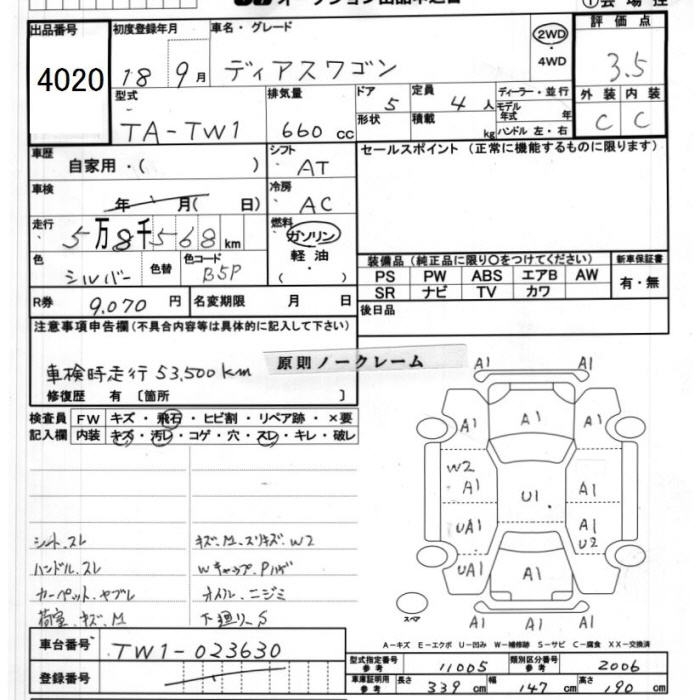 出品番号 4020
初度登録年月 18 9月
車名・グレード ディアスワゴン
2WD・4WD
評価点 3.5
型式 TA-TW1
排気量 660 cc
ドア 5
定員 4 人
ディーラー・並行
形状
積載 kg
モデル年式 年
ハンドル 左・右
外装 内装
C C
車歴 自家用・( )
シフト AT
セールスポイント (正常に機能するものに限ります)
車検 年 月( 日)
冷房 AC
走行 5万8千568km
燃料 ガソリン 軽油・( )
色 シルバー 色替
色コード B5P
装備品 (純正品に限り〇をつけてください)
新車保証書
PS PW ABS エアB AW
有・無
SR ナビ TV カワ
R券 9,070 円
名変期限 月 日
後日品
注意事項申告欄(不具合内容等は具体的に記入して下さい)
原則ノークレーム
車検時走行 53,500km
修復歴 有 〔箇所 〕
検査員記入欄
FW キズ・飛石・ヒビ割・リペア跡・×要
内装 キズ・汚レ・コゲ・穴・スレ・キレ・破レ
シート.スレ
キズ.M.スリキズ.W2
ハンドル.スレ
Wキャップ.Pハゲ
カーペット.ヤブレ
オイル.ニジミ
荷室.キズ.M
下廻リ.S
A1 A1
A1 A1 A1
W2
A1 U1 A1
UA1 A1
U2
UA1 A1 A1
A1 A1 A1
スペア
A-キズ E-エクボ U-凹み W-補修跡 S-サビ C-腐食 XX-交換済
車台番号 TW1-023630
登録番号
型式指定番号 参考 11005
類別区分番号 参考 2006
車庫証明用 参考 長さ 339 cm 幅 147 cm 高さ 190 cm